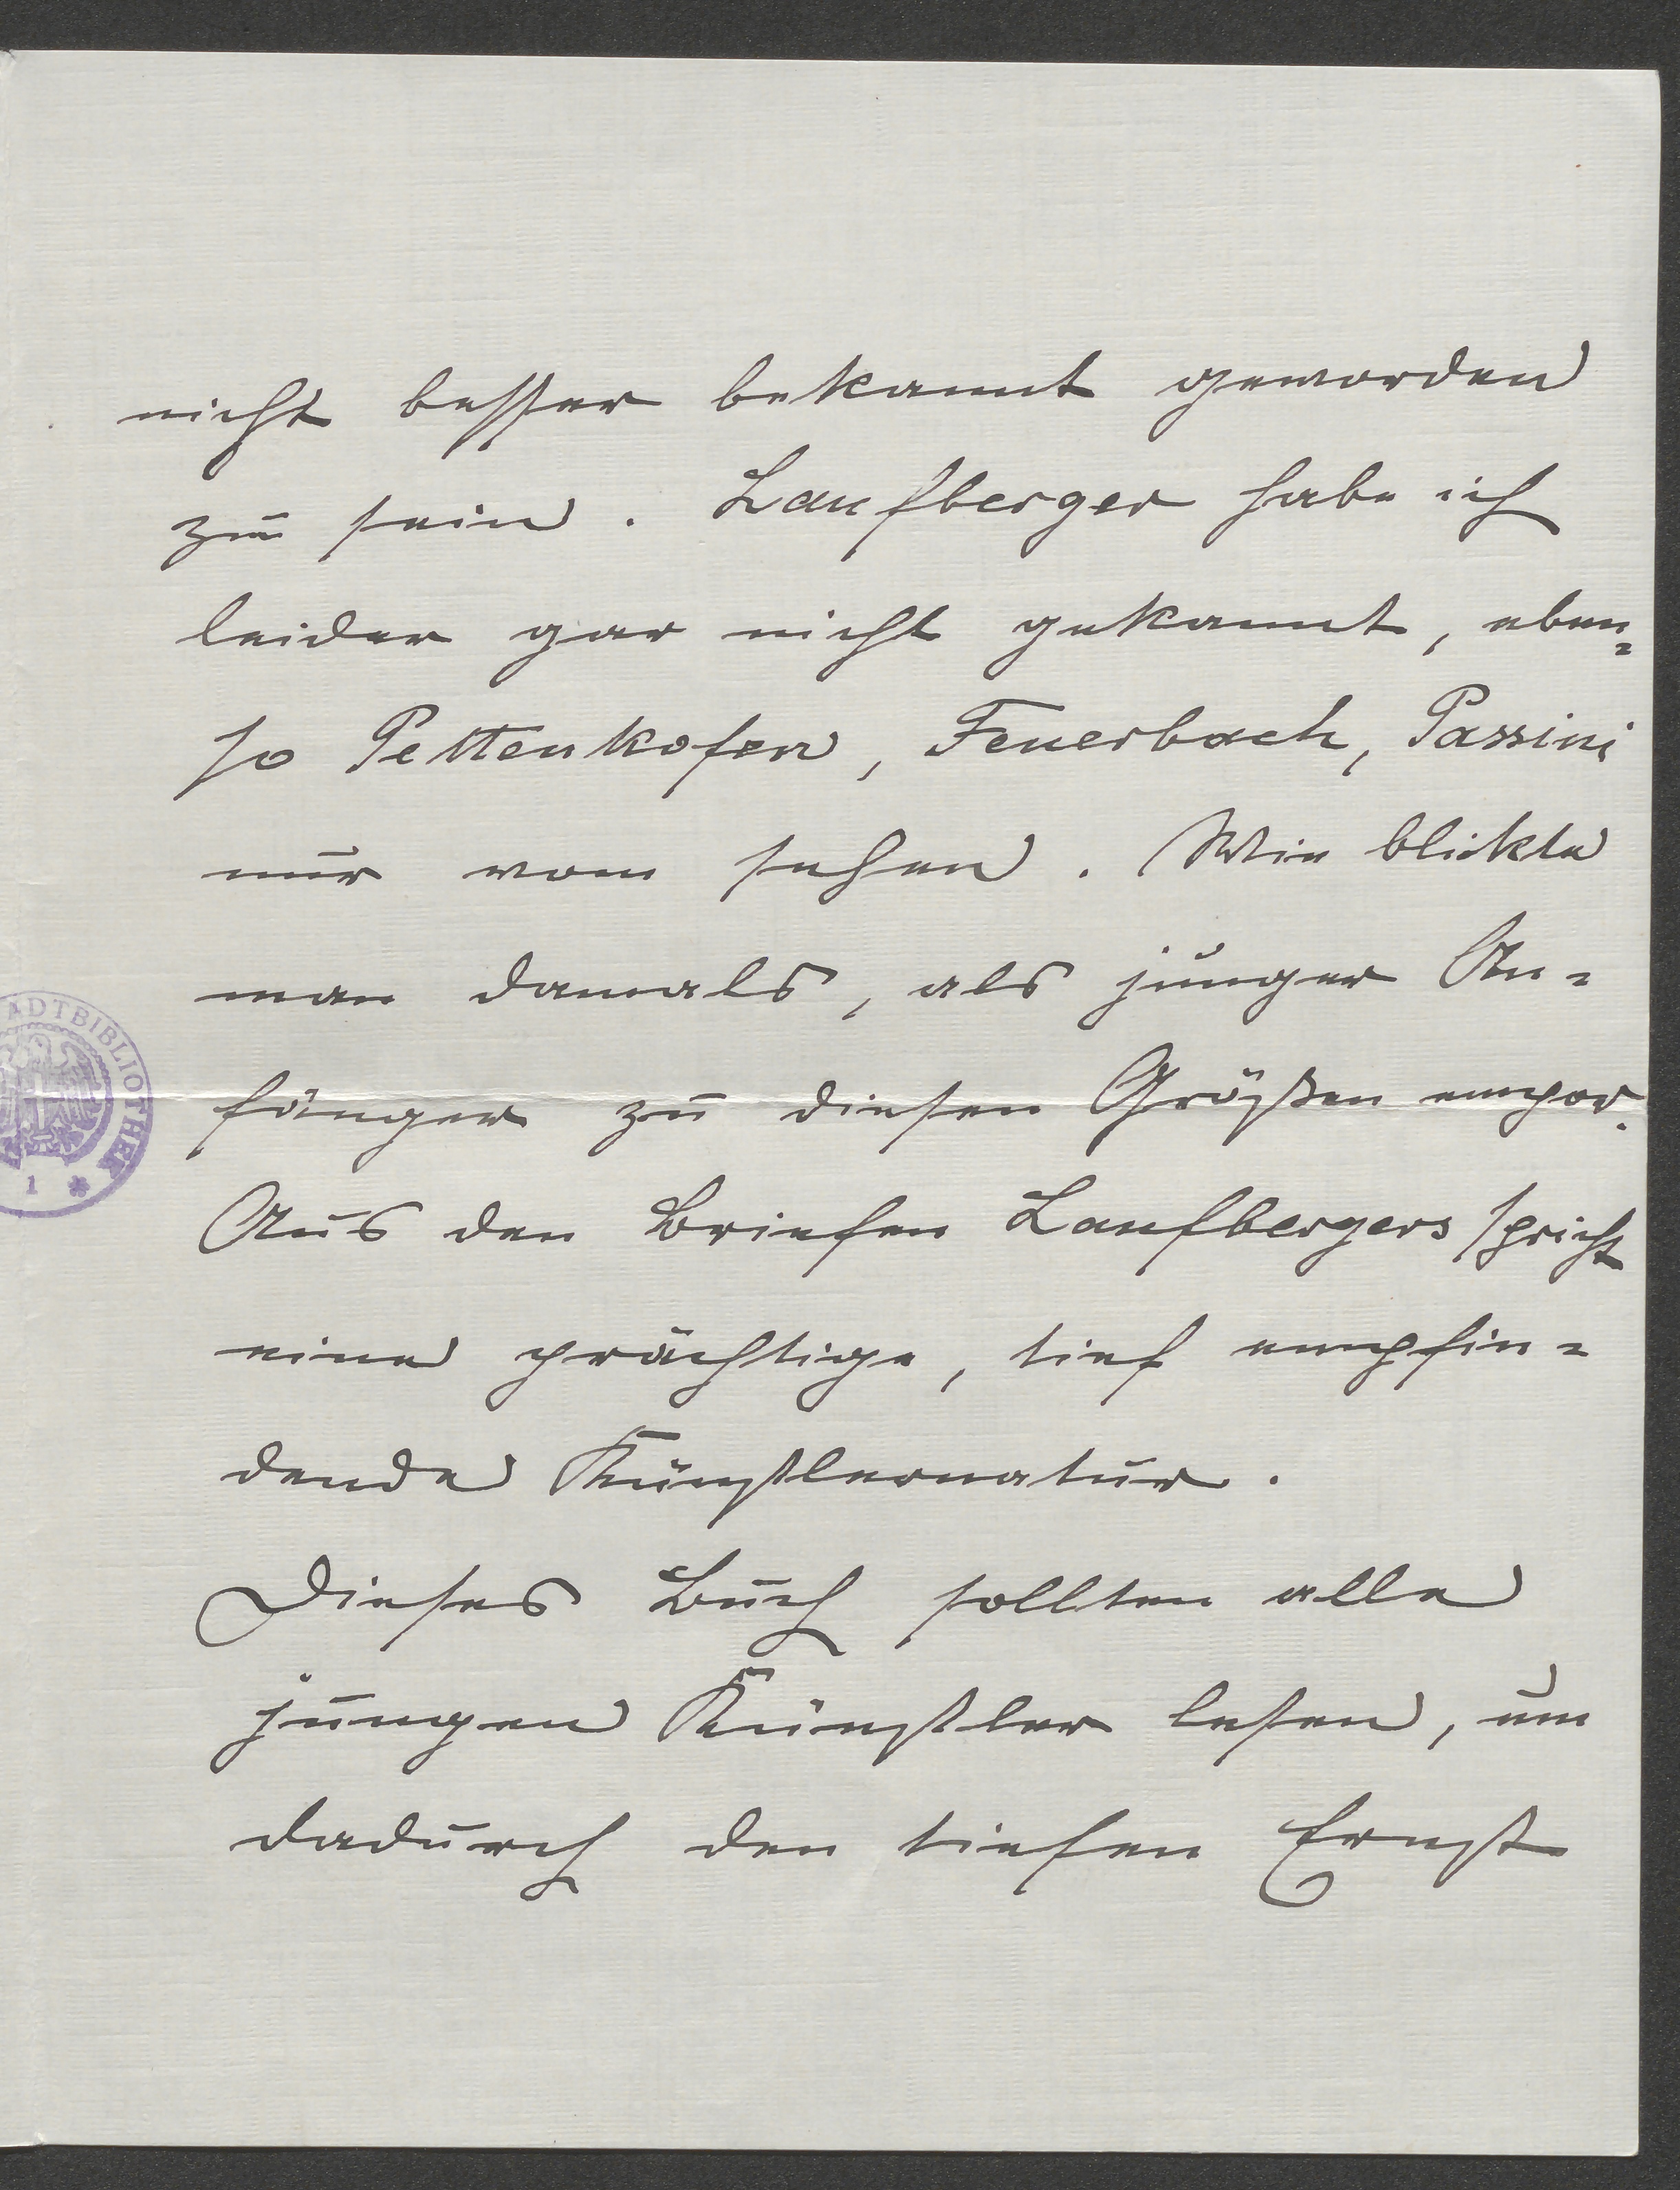 nicht besser bekannt geworden
zu sein. Laufberger habe ich
leider gar nicht gekannt, eben=
so Pettenkofen, Feuerbach, Passini
nur vom sehen. Wie blickte
man damals, als junger An=
fänger zu diesen Größen empor.
ADTBIBLIOTHEK
1
Aus den Briefen Laufbergers spricht
eine prächtige, tief empfin=
dende Künstlernatur.
Dieses Buch sollten alle
jungen Künstler lesen, um
dadurch den tiefen Ernst